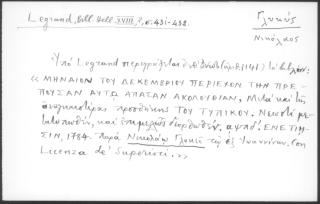 Legrand, Bibl. Hell. XVIII, 2, σ. 431-432.
Γλυκύς
Νικόλαος
Ὑπὸ Legrand περιγράφεται ὑπ' ἀριθ. (1141) τὸ βιβλίον:
«ΜΗΝΑΙΟΝ ΤΟΥ ΔΕΚΕΜΒΡΙΟΥ ΠΕΡΙΕΧΟΝ ΤΗΝ ΠΡΕ-
ΠΟΥΣΑΝ ΑΥΤΩ ΑΠΑΣΑΝ ΑΚΟΛΟΥΘΙΑΝ, Μετὰ καὶ τῆς
προσθήκης ΤΟΥ ΤΥΠΙΚΟΥ. Νεωστὶ με-
τατυπωθὲν, καὶ ἐπιμελῶς διορθωθέν. αψπδ'. ΕΝΕΤΙΗ-
ΣΙΝ, 1784. Παρὰ Νικολάῳ Γλυκεῖ τῷ ἐξ Ἰωαννίνων. Con
Licenza de' Superiori.»